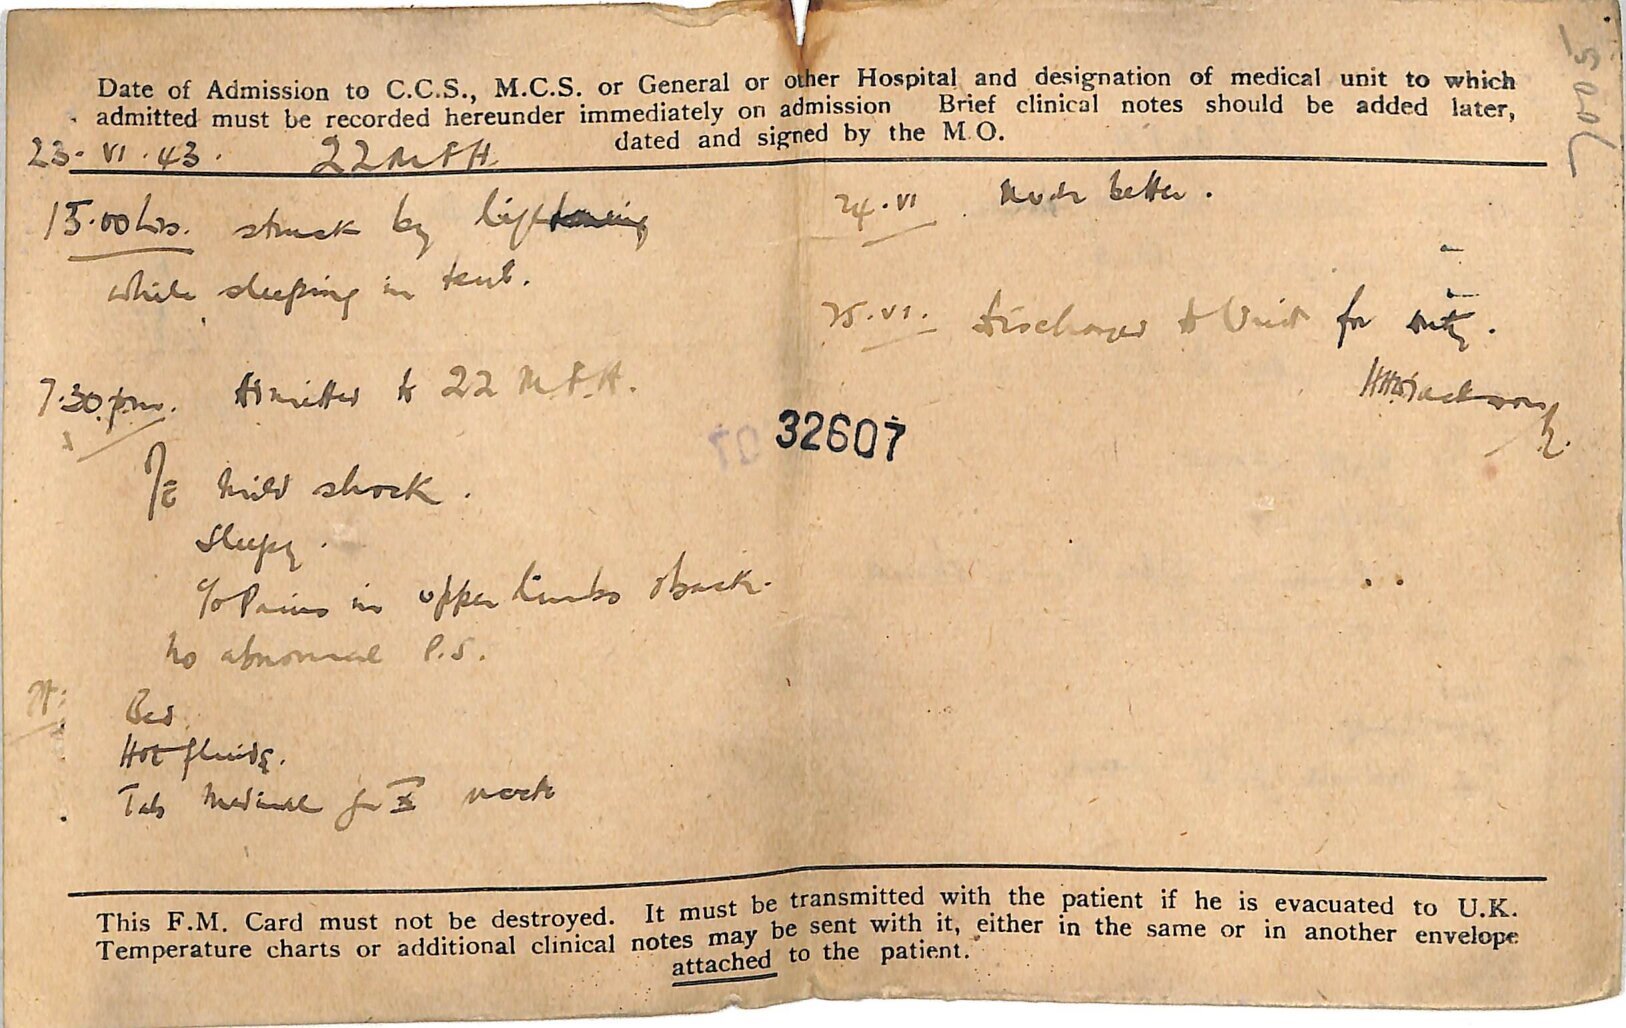 Date of Admission to C.C.S., M.C.S. or General or other Hospital and designation of medical unit to which
admitted must be recorded hereunder immediately on admission Brief clinical notes should be added later,
dated and signed by the M.O.
23. VI. 43. 22 M.F.H.
15.00 hrs. struck by lightening
while sleeping in tent.
7.30 pm. Admitted to 22 M.F.H.
mild shock.
Sleepy.
c/o Pains in upper limbs & back.
No abnormal P.S.
Bed
Hot fluids.
Tab for
24.VI Much better.
25.VI. Discharged to Unit for duty.
32607
This F.M. Card must not be destroyed. It must be transmitted with the patient if he is evacuated to U.K.
Temperature charts or additional clinical notes may be sent with it, either in the same or in another envelope
attached to the patient.